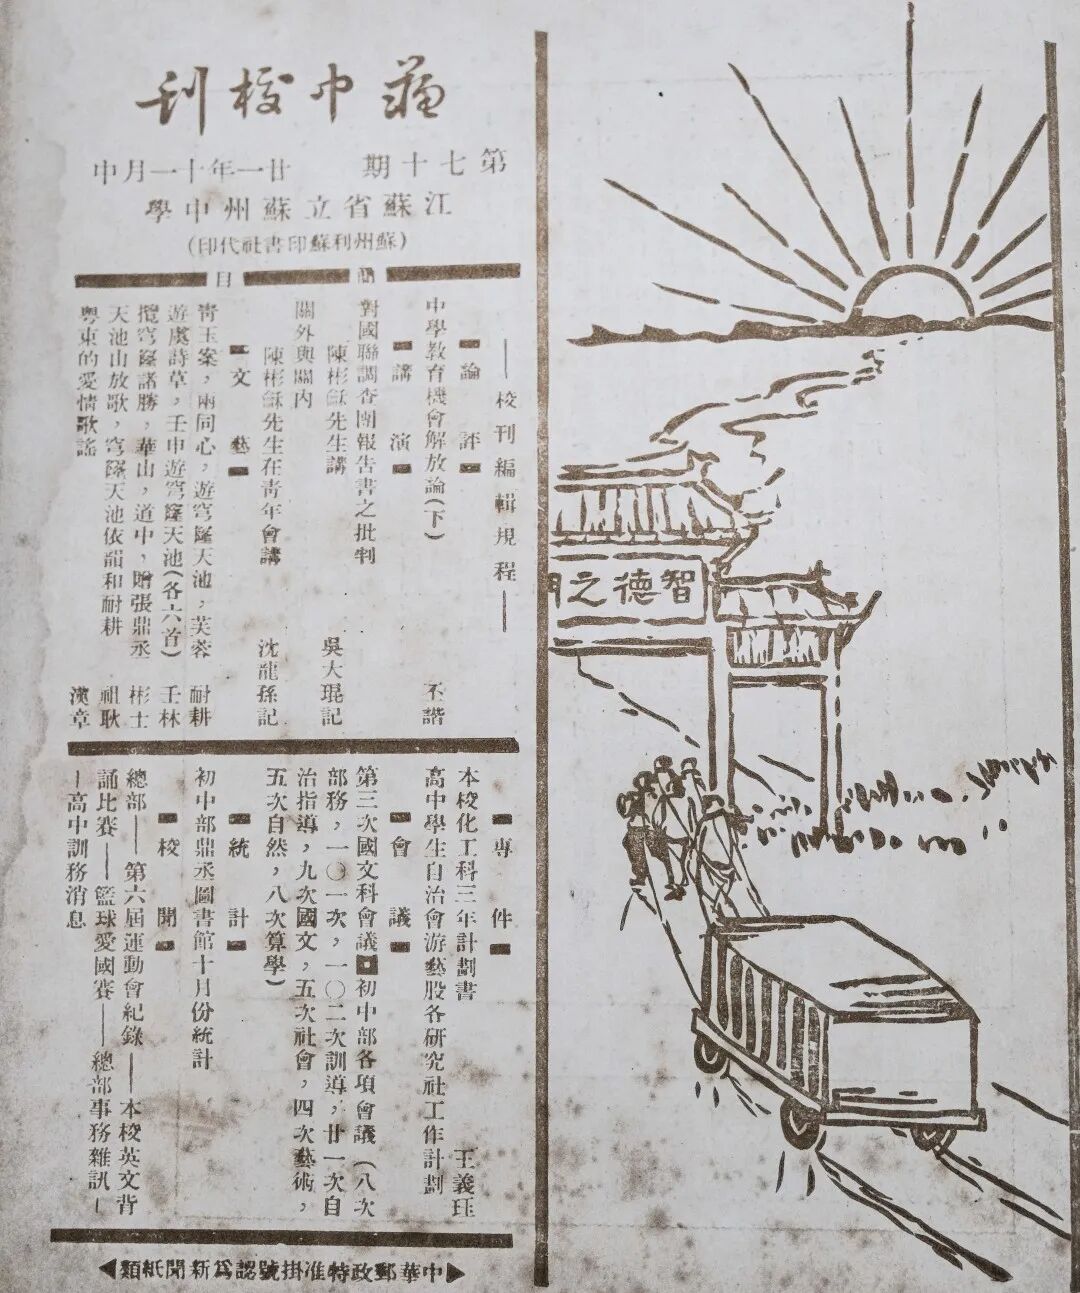 蘇中校刊
第七十期　廿一年十一月中
江蘇省立蘇州中學
(蘇州利蘇印書社代印)
簡目
——校刊編輯規程——
論評
中學教育機會解放論(下)　丕諧
講演
對國聯調查團報告書之批判
陳彬龢先生講　吳大琨記
關外與關內
陳彬龢先生在青年會講　沈龍孫記
文藝
青玉案，兩同心，遊穹窿天池，芙蓉　耐耕
遊虞詩草，壬申遊穹窿天池(各六首)　壬林
攬穹窿諸勝，華山，道中，贈張鼎丞　彬士
天池山放歌，穹窿天池依韻和耐耕　祖耿
粵東的愛情歌謠　漢章
專件
本校化工科三年計劃書　王義珏
高中學生自治會游藝股各研究社工作計劃
會議
第三次國文科會議　初中部各項會議(八次
部務，一〇一次，一〇二次訓導，廿一次自
治指導，九次國文，五次社會，四次藝術，
五次自然，八次算學)
統計
初中部鼎丞圖書館十月份統計
校聞
總部——第六屆運動會紀錄——本校英文背
誦比賽——籃球愛國賽——總部事務雜訊—
—高中訓務消息
中華郵政特准掛號認爲新聞紙類
智德之門